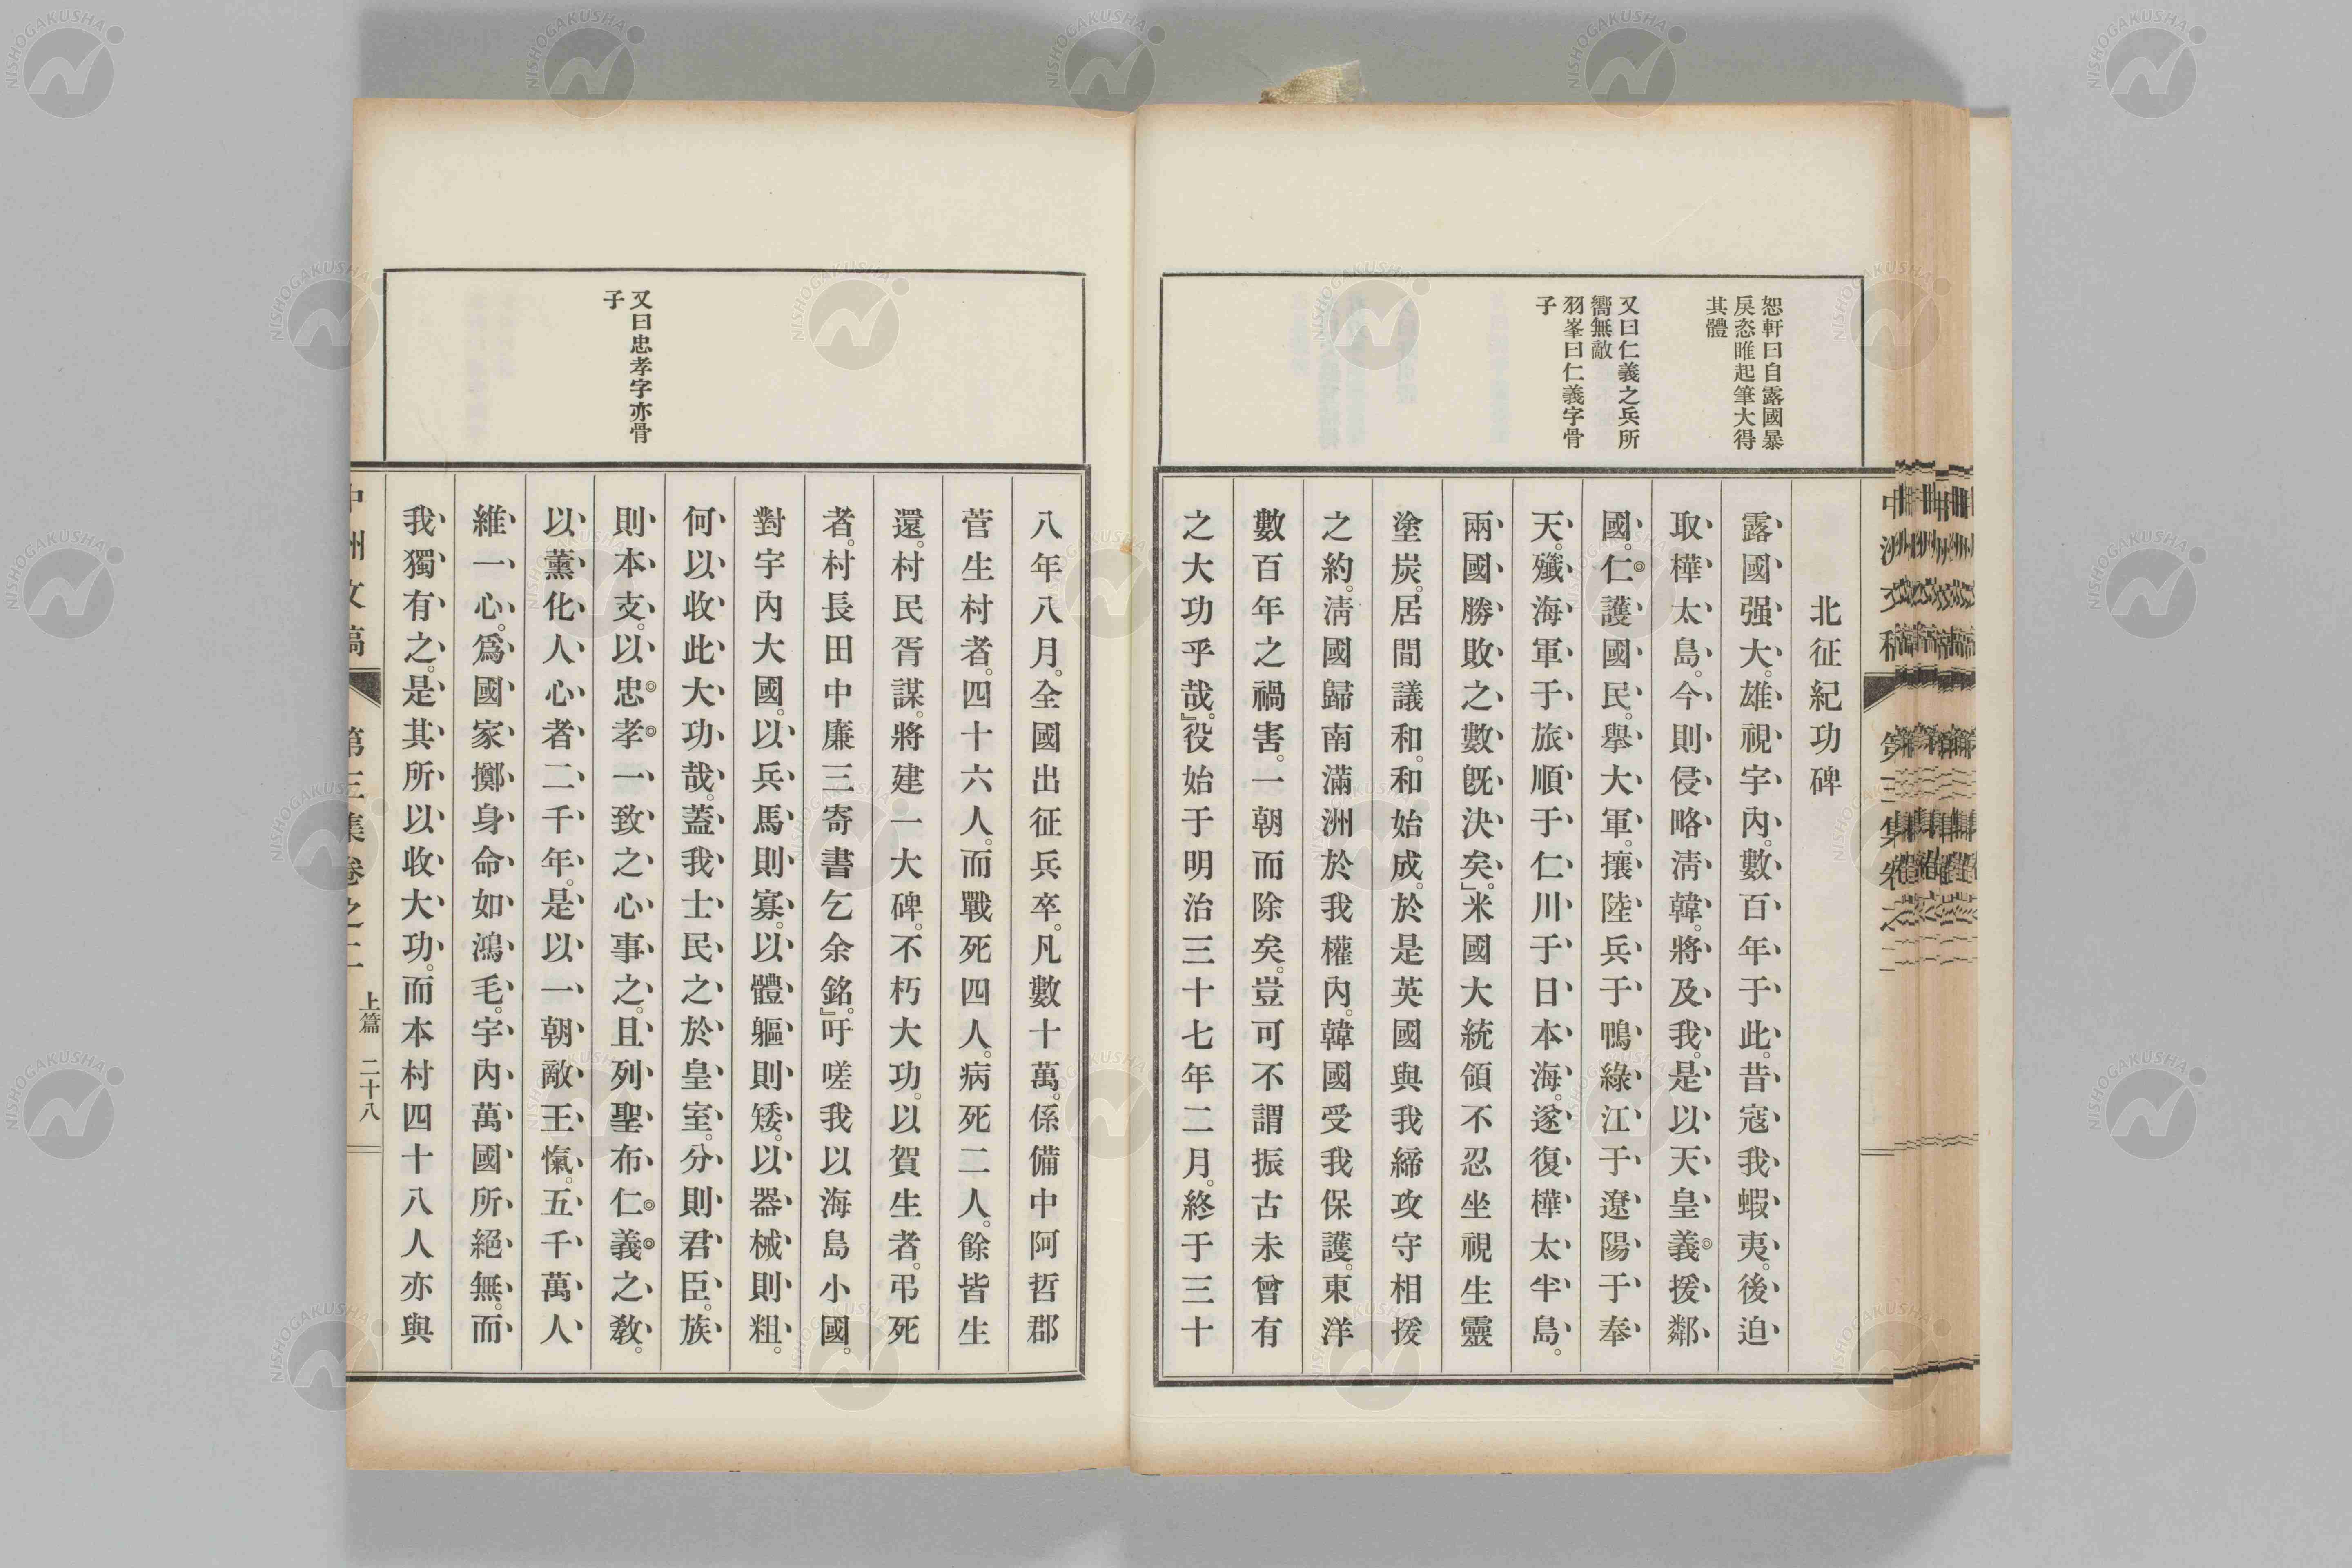 恕軒曰自露國暴
戾恣睢起筆大得
其體
又曰仁義之兵所
嚮無敵
羽峯曰仁義字骨
子
北征紀功碑
露國强大。雄視宇內。數百年于此。昔寇我蝦夷。後迫
取樺太島。今則侵略淸韓。將及我。是以天皇義援鄰
國。仁護國民。擧大軍。攘陸兵于鴨綠江于遼陽于奉
天。殲海軍于旅順于仁川于日本海。遂復樺太半島。
兩國勝敗之數旣決矣。』米國大統領不忍坐視生靈
塗炭。居間議和。和始成。於是英國與我締攻守相援
之約。淸國歸南滿洲於我權內。韓國受我保護。東洋
數百年之禍害。一朝而除矣。豈可不謂振古未曾有
之大功乎哉。』役始于明治三十七年二月。終于三十
又曰忠孝字亦骨
子
八年八月。全國出征兵卒。凡數十萬。係備中阿哲郡
菅生村者。四十六人。而戰死四人。病死二人。餘皆生
還。村民胥謀。將建一大碑。不朽大功。以賀生者。弔死
者。村長田中廉三寄書乞余銘。』吁嗟我以海島小國。
對宇內大國。以兵馬則寡。以體軀則矮。以器械則粗。
何以收此大功哉。蓋我士民之於皇室。分則君臣。族
則本支。以忠孝一致之心事之。且列聖布仁義之敎。
以薰化人心者二千年。是以一朝敵王愾。五千萬人
維一心。爲國家擲身命如鴻毛。宇內萬國所絕無。而
我獨有之。是其所以收大功。而本村四十八人亦與
中洲文稿 第三集卷之二 上篇 二十八